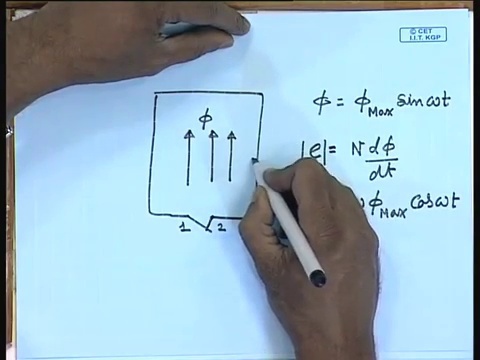 © CET
I.I.T. KGP
ϕ = ϕ_Max sin ωt
ϕ
|e| = N dϕ/dt
ϕ_Max cos ωt
1 2